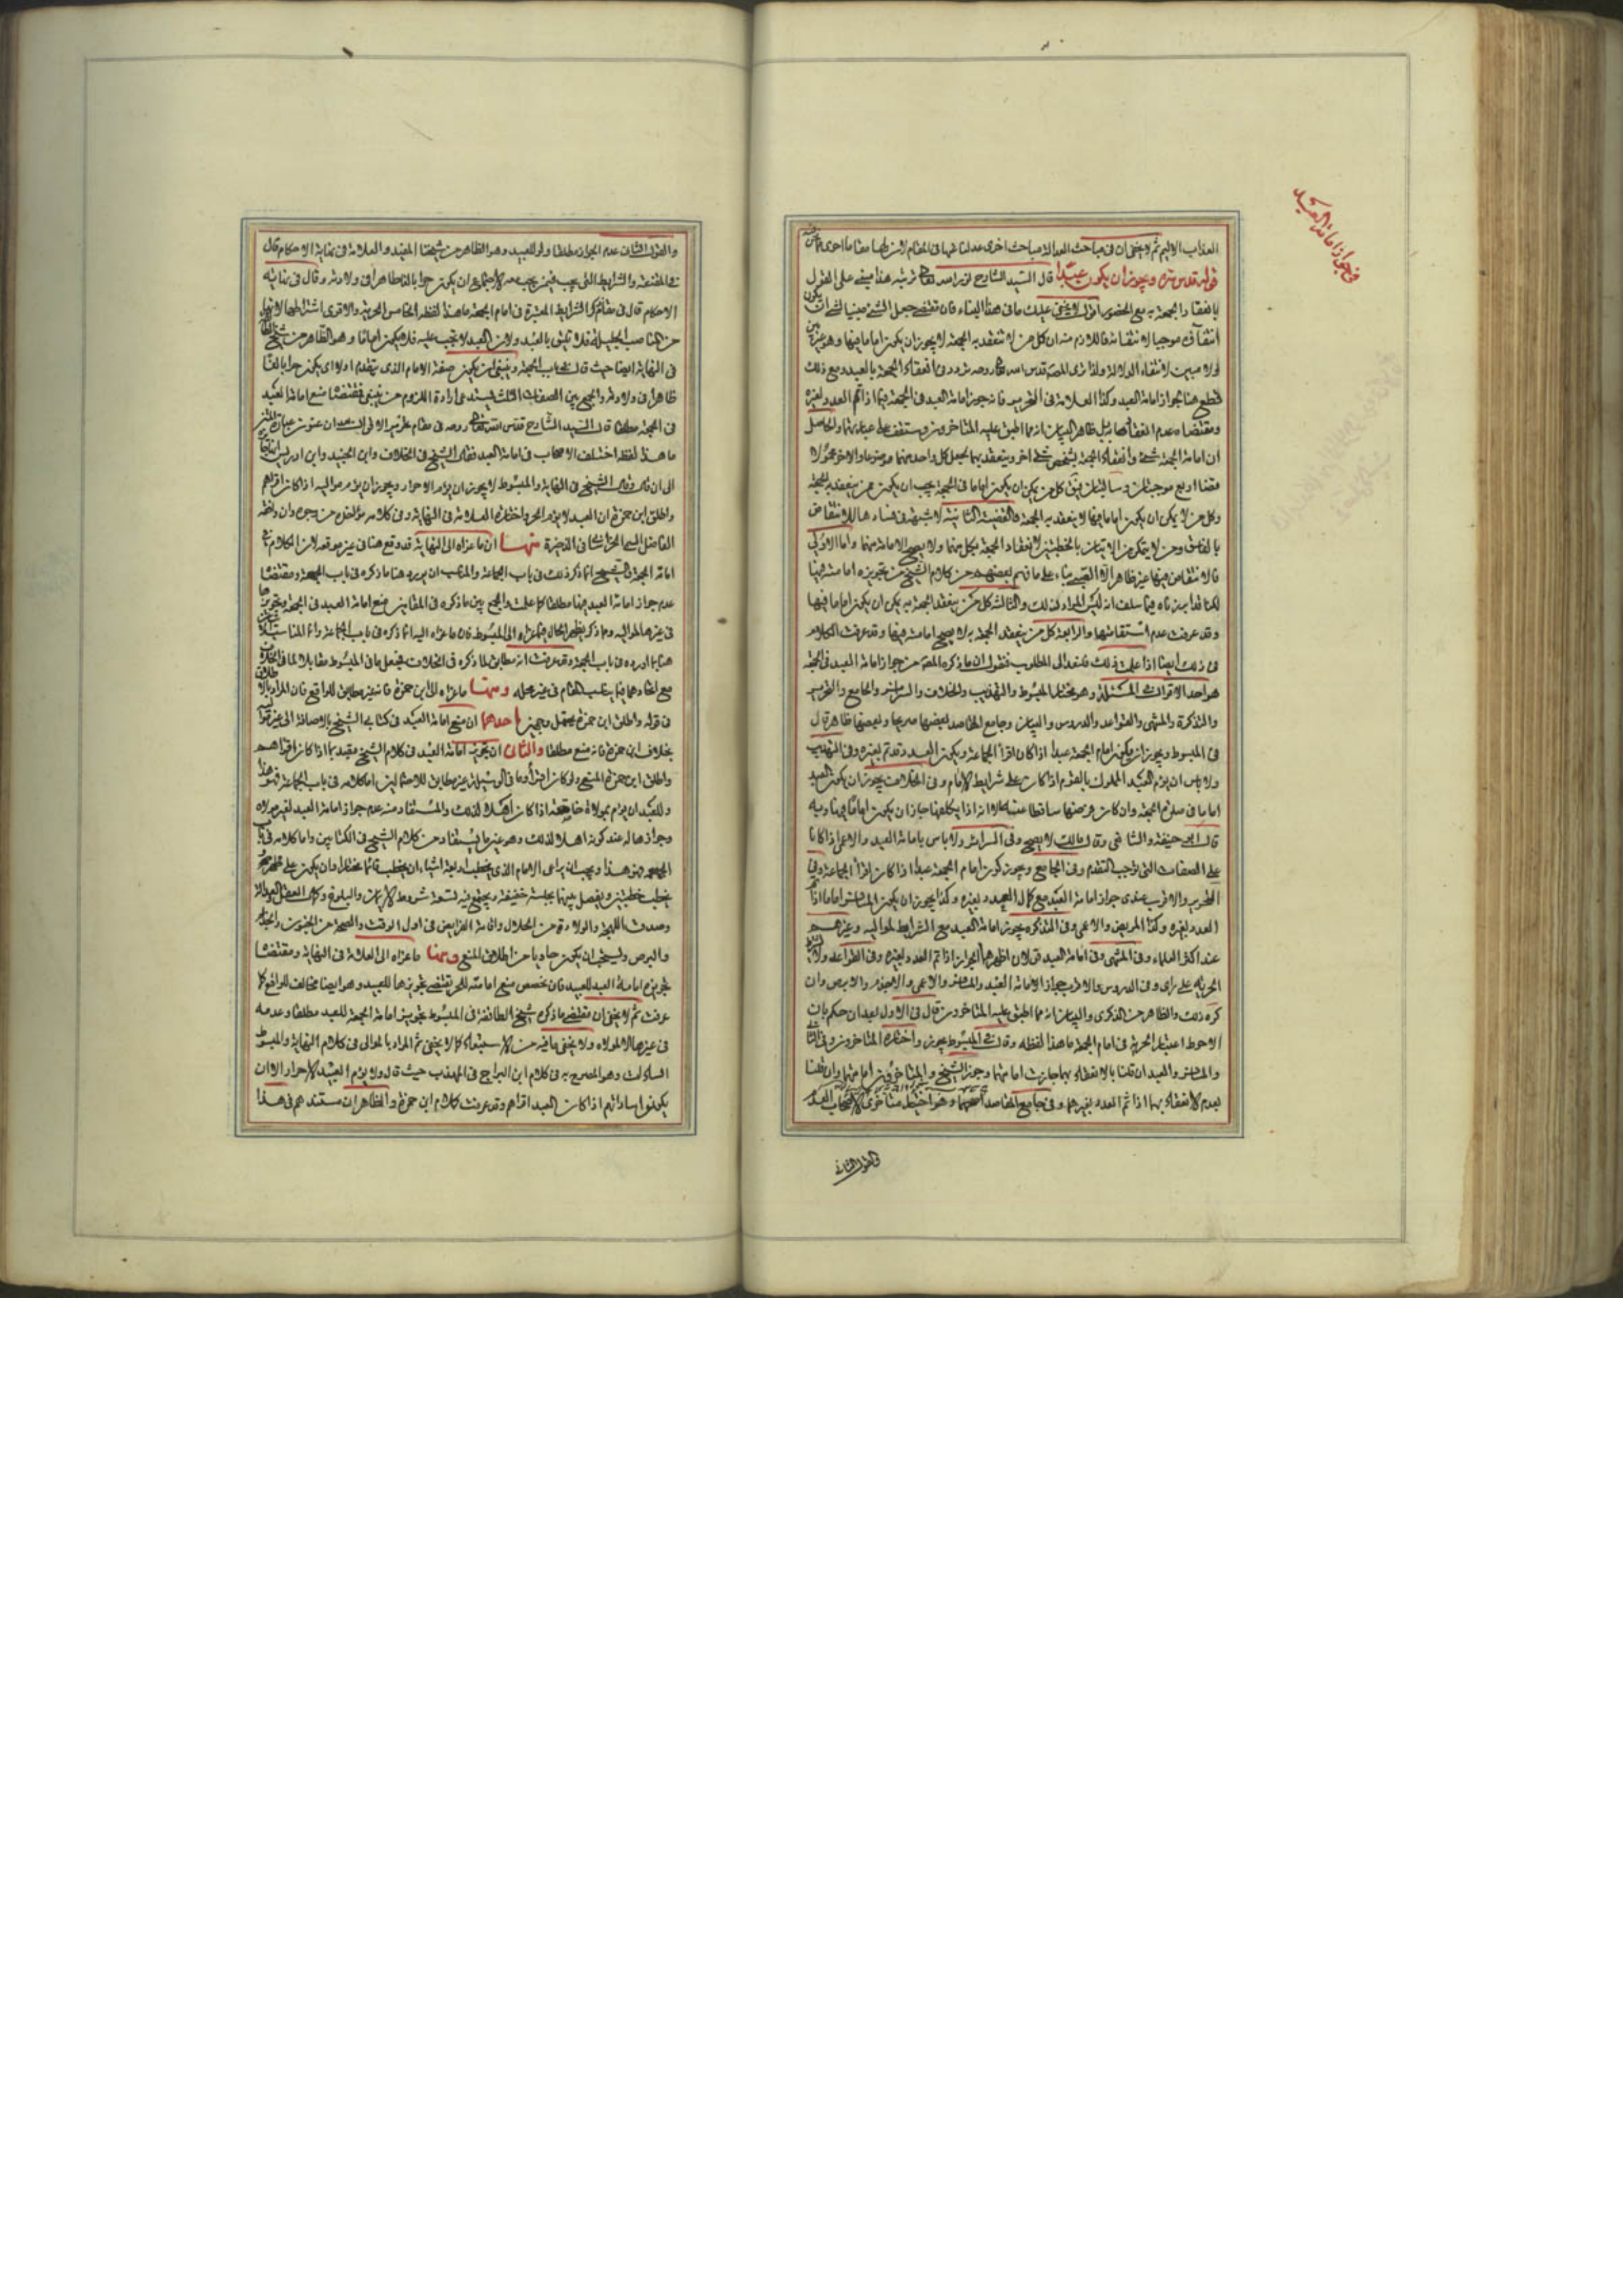 في جواز امامة العبيد
العذاب الاليم ثم لا يخفى ان في مباحث العدالة مباحث اخرى عدلنا عنها في المقام لان لها مقاما اخرى
قوله قدس سره ويجوز ان يكون عبدا قال السيد الشارح نور الله تربته هذا مبني على القول
بانعقاد الجمعة به مع الحضور اقول لا يخفى عليك ما في هذا البناء فان مقتضى جعل الشيء مبنيا لشيء ان يكون
انتفاؤه موجبا لانتفائه فاللازم منه ان كل من لا تنعقد به الجمعة لا يجوز ان يكون اماما فيها وهو غير بين
اولا مبين لانتفاء الدلالة ولذا ترى المصنف قدس الله روحه تردد في انعقاد الجمعة بالعبد ومع ذلك
قطع هنا بجواز امامة العبد وكذا العلامة في التحرير فانه جوز امامة العبد في الجمعة فيما اذا تم العدد بغيره
ومقتضاه عدم انعقادها بل ظاهر البيان انه مما اطبق عليه المتاخرون وستقف على عبارتهما والحاصل
ان امامة الجمعة شيء وانعقاد الجمعة بشخص شيء اخر وينعقد بهما بجعل كل واحد منهما موضوعا والاخر محمولا
قضايا اربع موجبتان وسالبتان فنقول كل من يمكن ان يكون اماما في الجمعة يجب ان يكون ممن ينعقد به الجمعة
وكل من لا يمكن ان يكون اماما فيها لا ينعقد به الجمعة فالقضية الثانية لا شبهة في فسادها للانتقاض
بالفاسق ومن لا يتمكن من الاتيان بالخطبتين لانعقاد الجمعة بكل منهما ولا يصح الامامة منهما واما الاولى
فالانتقاض فيها غير ظاهر الا القيد بناء على ما فهم بعضهم من كلام الشيخ من تجويزه امامته فيها
لكنا قد ابرزناه فيما سلف انه ليس المراد ذلك والثالثة كل من ينعقد الجمعة به يمكن ان يكون اماما فيها
وقد عرفت عدم استقامتها والرابعة كل من ينعقد الجمعة به لا يصح امامته فيها وقد عرفت الكلام
في ذلك ايضا اذا علمت ذلك فلنعد الى المطلوب فنقول ان ما ذكره المصنف من جواز امامة العبد في الجمعة
هو احد الاقوال في المسئلة وهو مختار المبسوط والتهذيب والخلاف والسرائر والجامع والتحرير
والتذكرة والمنتهى والقواعد والدروس والبيان وجامع المقاصد بعضها صريحا وبعضها ظاهرا قال
في المبسوط ويجوز ان يكون امام الجمعة عبدا اذا كان اقرأ الجماعة ويكون العدد قد تم بغيره وفي التهذيب
ولا باس ان يؤم العبد المملوك بالقوم اذا كان على شرايط الامام وفي الخلاف يجوز ان يكون العبد
اماما في صلوة الجمعة وان كان فرضها ساقطا عنه الا انه اذا تكلفها جاز ان يكون اماما فيها وبه
قال ابو حنيفة والشافعي وقال مالك لا يصح وفي السرائر ولا باس بامامة العبد والاعمى اذا كانا
على الصفات التي توجب التقدم وفي الجامع ويجوز كون امام الجمعة عبدا اذا كان اقرأ الجماعة وفي
التحرير والاقرب عندي جواز امامة العبد مع كمال العدد بغيره وكذا يجوز ان يكون المسافر اماما اذا تم
العدد بغيره وكذا المريض والاعمى وفي التذكرة يجوز امامة العبد مع الشرايط لمواليه وغيرهم
عند اكثر العلماء وفي المنتهى وفي امامة العبد قولان اظهرهما الجواز اذا تم العدد بغيره وفي القواعد ولا
الحرية على راى وفي الدروس والاقرب جواز الامامة العبد والمسافر والاعمى والاجذم والابرص وان
كره ذلك والظاهر من الذكرى والبيان انه مما اطبق عليه المتاخرون قال في الاول بعد ان حكم بان
الاحوط اعتبار الحرية في امام الجمعة ما هذا لفظه وقال في المبسوط يجوز واختاره المتاخرون وفي الثاني
والمسافر والعبد ان قلنا بالانعقاد بهما جازت امامتهما وجوز الشيخ والمتاخرون امامتهما وان قلنا
بعدم الانعقاد بهما اذا تم العدد بغيرهما وفي جامع المقاصد اصحهما وهو اختيار متاخري الاصحاب
والقول الثاني
والقول الثاني عدم الجواز مطلقا ولو للعبيد وهو الظاهر من شيخنا المفيد والعلامة في نهاية الاحكام قال
في المقنعة والشرايط التي يجب فيمن يجب معه الاجتماع ان يكون حرا بالغا طاهرا في ولادته وقال في نهاية
الاحكام قال في مقام ذكر الشرايط المعتبرة في امام الجمعة ما هذا لفظه الخامس الحرية والاقوى اشتراطها لانها
من المناصب الجليلة فلا تليق بالعبد ولان العبد لا تجب عليه فلا يكون اماما وهو الظاهر من شيخ الطائفة
في النهاية ايضا حيث قال في باب الجمعة وينبغي ان يكون صفة الامام الذي يتقدم اولا ان يكون حرا بالغا
طاهرا في ولادته والجمع بين الصفات الثلث يستدعي ارادة اللزوم من ينبغي فمقتضاه منع امامة العبد
في الجمعة مطلقا قال السيد الشارح قدس الله روحه في مقام
ما هذا لفظه اختلف الاصحاب في امامة العبد فقال الشيخ في الخلاف وابن الجنيد وابن ادريس
الى ان قال وقال الشيخ في النهاية والمبسوط لا يجوز ان يؤم الاحرار ويجوز ان يؤم مواليه اذا كان اقرأهم
واطلق ابن حمزة ان العبد لا يؤم الحر واختاره العلامة في النهاية وفي كلامه مؤاخذة من وجوه وان وافقه
الفاضل السبزواري في الذخيرة منها ان ما عزاه الى النهاية قد وقع هنا في غير موقعه لان الكلام في
امامة الجمعة والشيخ انما ذكر ذلك في باب الجماعة والمناسب ان يورد هنا ما ذكره في باب الجمعة ومقتضاه
عدم جواز امامة العبد فيها مطلقا كما علمت والجمع بين ما ذكره في المقامين منع امامة العبد في الجمعة وتجويزها
في غيرها لمواليه ومما ذكر يظهر الحال فيما عزاه الى المبسوط فان ما عزاه اليه انما ذكره في باب الجماعة وانما المناسب
هنا ما اورده في باب الجمعة وقد عرفت انه مطابق لما ذكره في الخلاف فجعل ما في المبسوط مقابلا لما في الخلاف
مع اتحادهما فيما يناسب المقام في غير محله ومنها ما عزاه الى ابن حمزة فانه غير مطابق للواقع فان المراد بالاطلاق
في قوله واطلق ابن حمزة يحتمل وجهين احدهما ان منع امامة العبد في كتابي الشيخ بالاضافة الى غير مولاه
بخلاف ابن حمزة فانه منع مطلقا والثاني ان تجويز امامة العبد في كلام الشيخ مقيد بما اذا كان اقرأهم
واطلق ابن حمزة المنع ولو كان اقرأ وما في الوسيلة غير مطابق للاحتمالين اما كلامه في باب الجماعة فهو هذا
وللعبد ان يؤم بمولاه خاصة اذا كان اهلا لذلك والمستفاد منه عدم جواز امامة العبد لغير مولاه
وجوازها له عند كونه اهلا لذلك وهو غير ما يستفاد من كلام الشيخ في الكتابين واما كلامه في باب
الجمعة فهو هذا ويجب ان يراعى الامام الذي يخطب اربعة اشياء ان يخطب قائما مختارا وان يكون على طهر
يخطب خطبتين ويفصل بينهما بجلسة خفيفة ويجتمع فيه تسعة شروط الايمان والبلوغ وكمال العقل والعدالة
وصدق اللهجة والولادة من الحلال واقامة الفرائض في اول الوقت والصحة من الجنون والجذام
والبرص ويستحب ان يكون حاويا من اطلاق المنع ومنها ما عزاه الى العلامة في النهاية ومقتضاه
تجويزه امامة العبد للعبيد فان تخصيص منع امامته للحر يقتضي تجويزها للعبيد وهو ايضا مخالف للواقع كما
عرفت ثم لا يخفى ان مقتضى ما ذكره شيخ الطائفة في المبسوط تجويز امامة الجمعة للعبد مطلقا وعدمه
في غيرها الا لمولاه ولا يخفى ما فيه من الاستبعاد كما لا يخفى ثم المراد بالموالى في كلام النهاية والمبسوط
السادات وهو المصرح به في كلام ابن البراج في المهذب حيث قال ولا يؤم العبد الاحرار الا ان
يكونوا ساداتهم اذا كان العبد اقرأهم وقد عرفت كلام ابن حمزة والظاهر ان مستندهم في هذا